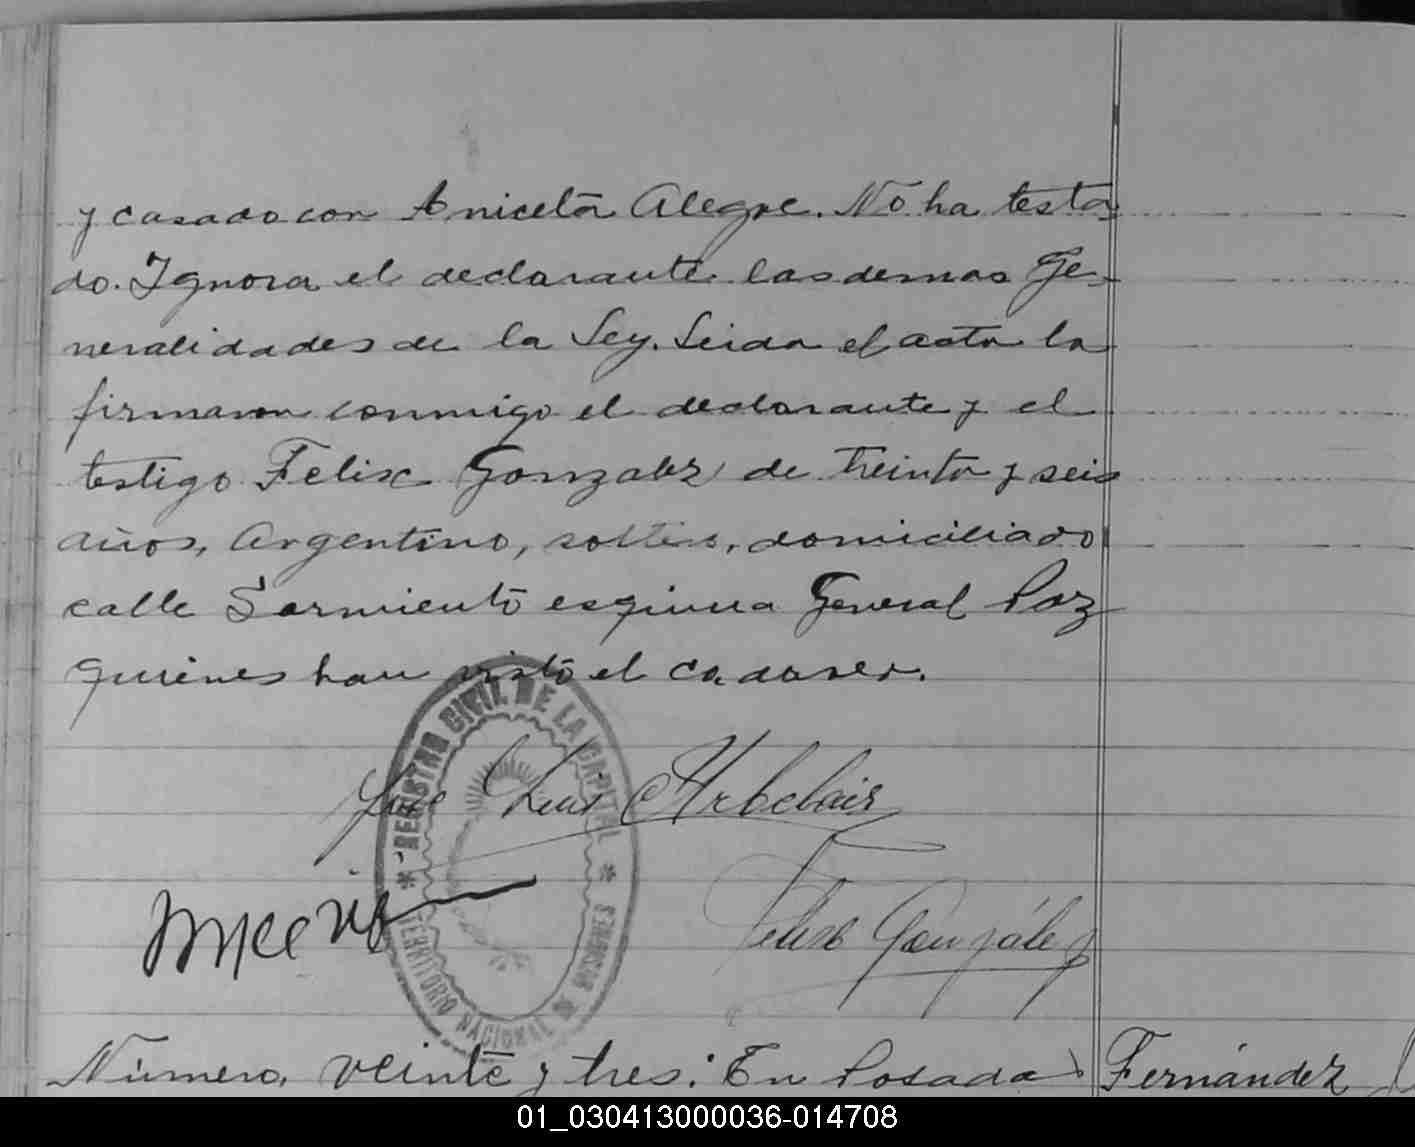 y casado con Aniceta Alegre. No ha testa
do. Ignora el declarante las demas Ge-
neralidades de la Ley. Leida el acta la
firmaron conmigo el declarante y el
testigo Felix Gonzalez de treinta y seis
años, Argentino, soltero, domiciliado
calle Sarmiento esquina General Paz
quienes han visto el cadaver.
REGISTRO CIVIL DE LA CAPITAL
José Luis Arbelaiz
Felix González
TERRITORIO NACIONAL DE MISIONES
Número veinte y tres: En Posadas Fernández
01_030413000036-014708